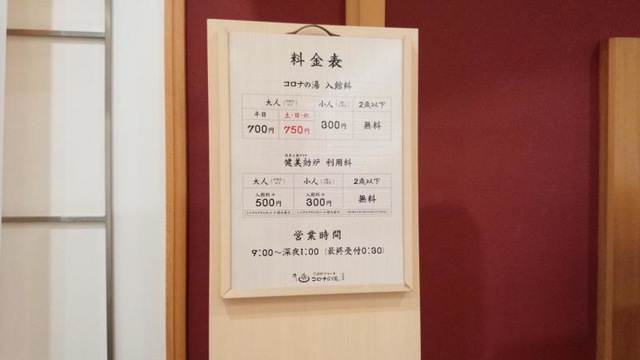 料金表
コロナの湯 入館料
大人 小人 2歳以下
平日 土・日・祝
700円 750円 300円 無料
健美効炉 利用料
大人 小人 2歳以下
入館料+ 入館料+
500円 300円 無料
営業時間
9:00~深夜1:00(最終受付0:30)
コロナの湯